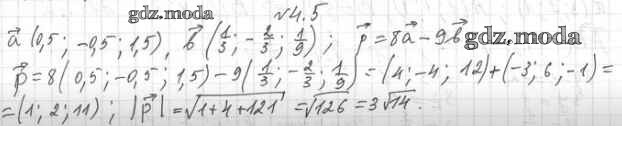 gdz.moda
№4.5
a⃗ (0,5 ; -0,5 ; 1,5), b⃗ (1/3 ; -2/3 ; 1/9) ; p⃗ = 8a⃗ - 9b⃗ gdz.moda
p⃗ = 8(0,5 ; -0,5 ; 1,5) - 9(1/3 ; -2/3 ; 1/9) = (4; -4; 12) + (-3; 6; -1) =
= (1; 2; 11) ; |p⃗| = √(1+4+121) = √126 = 3√14.